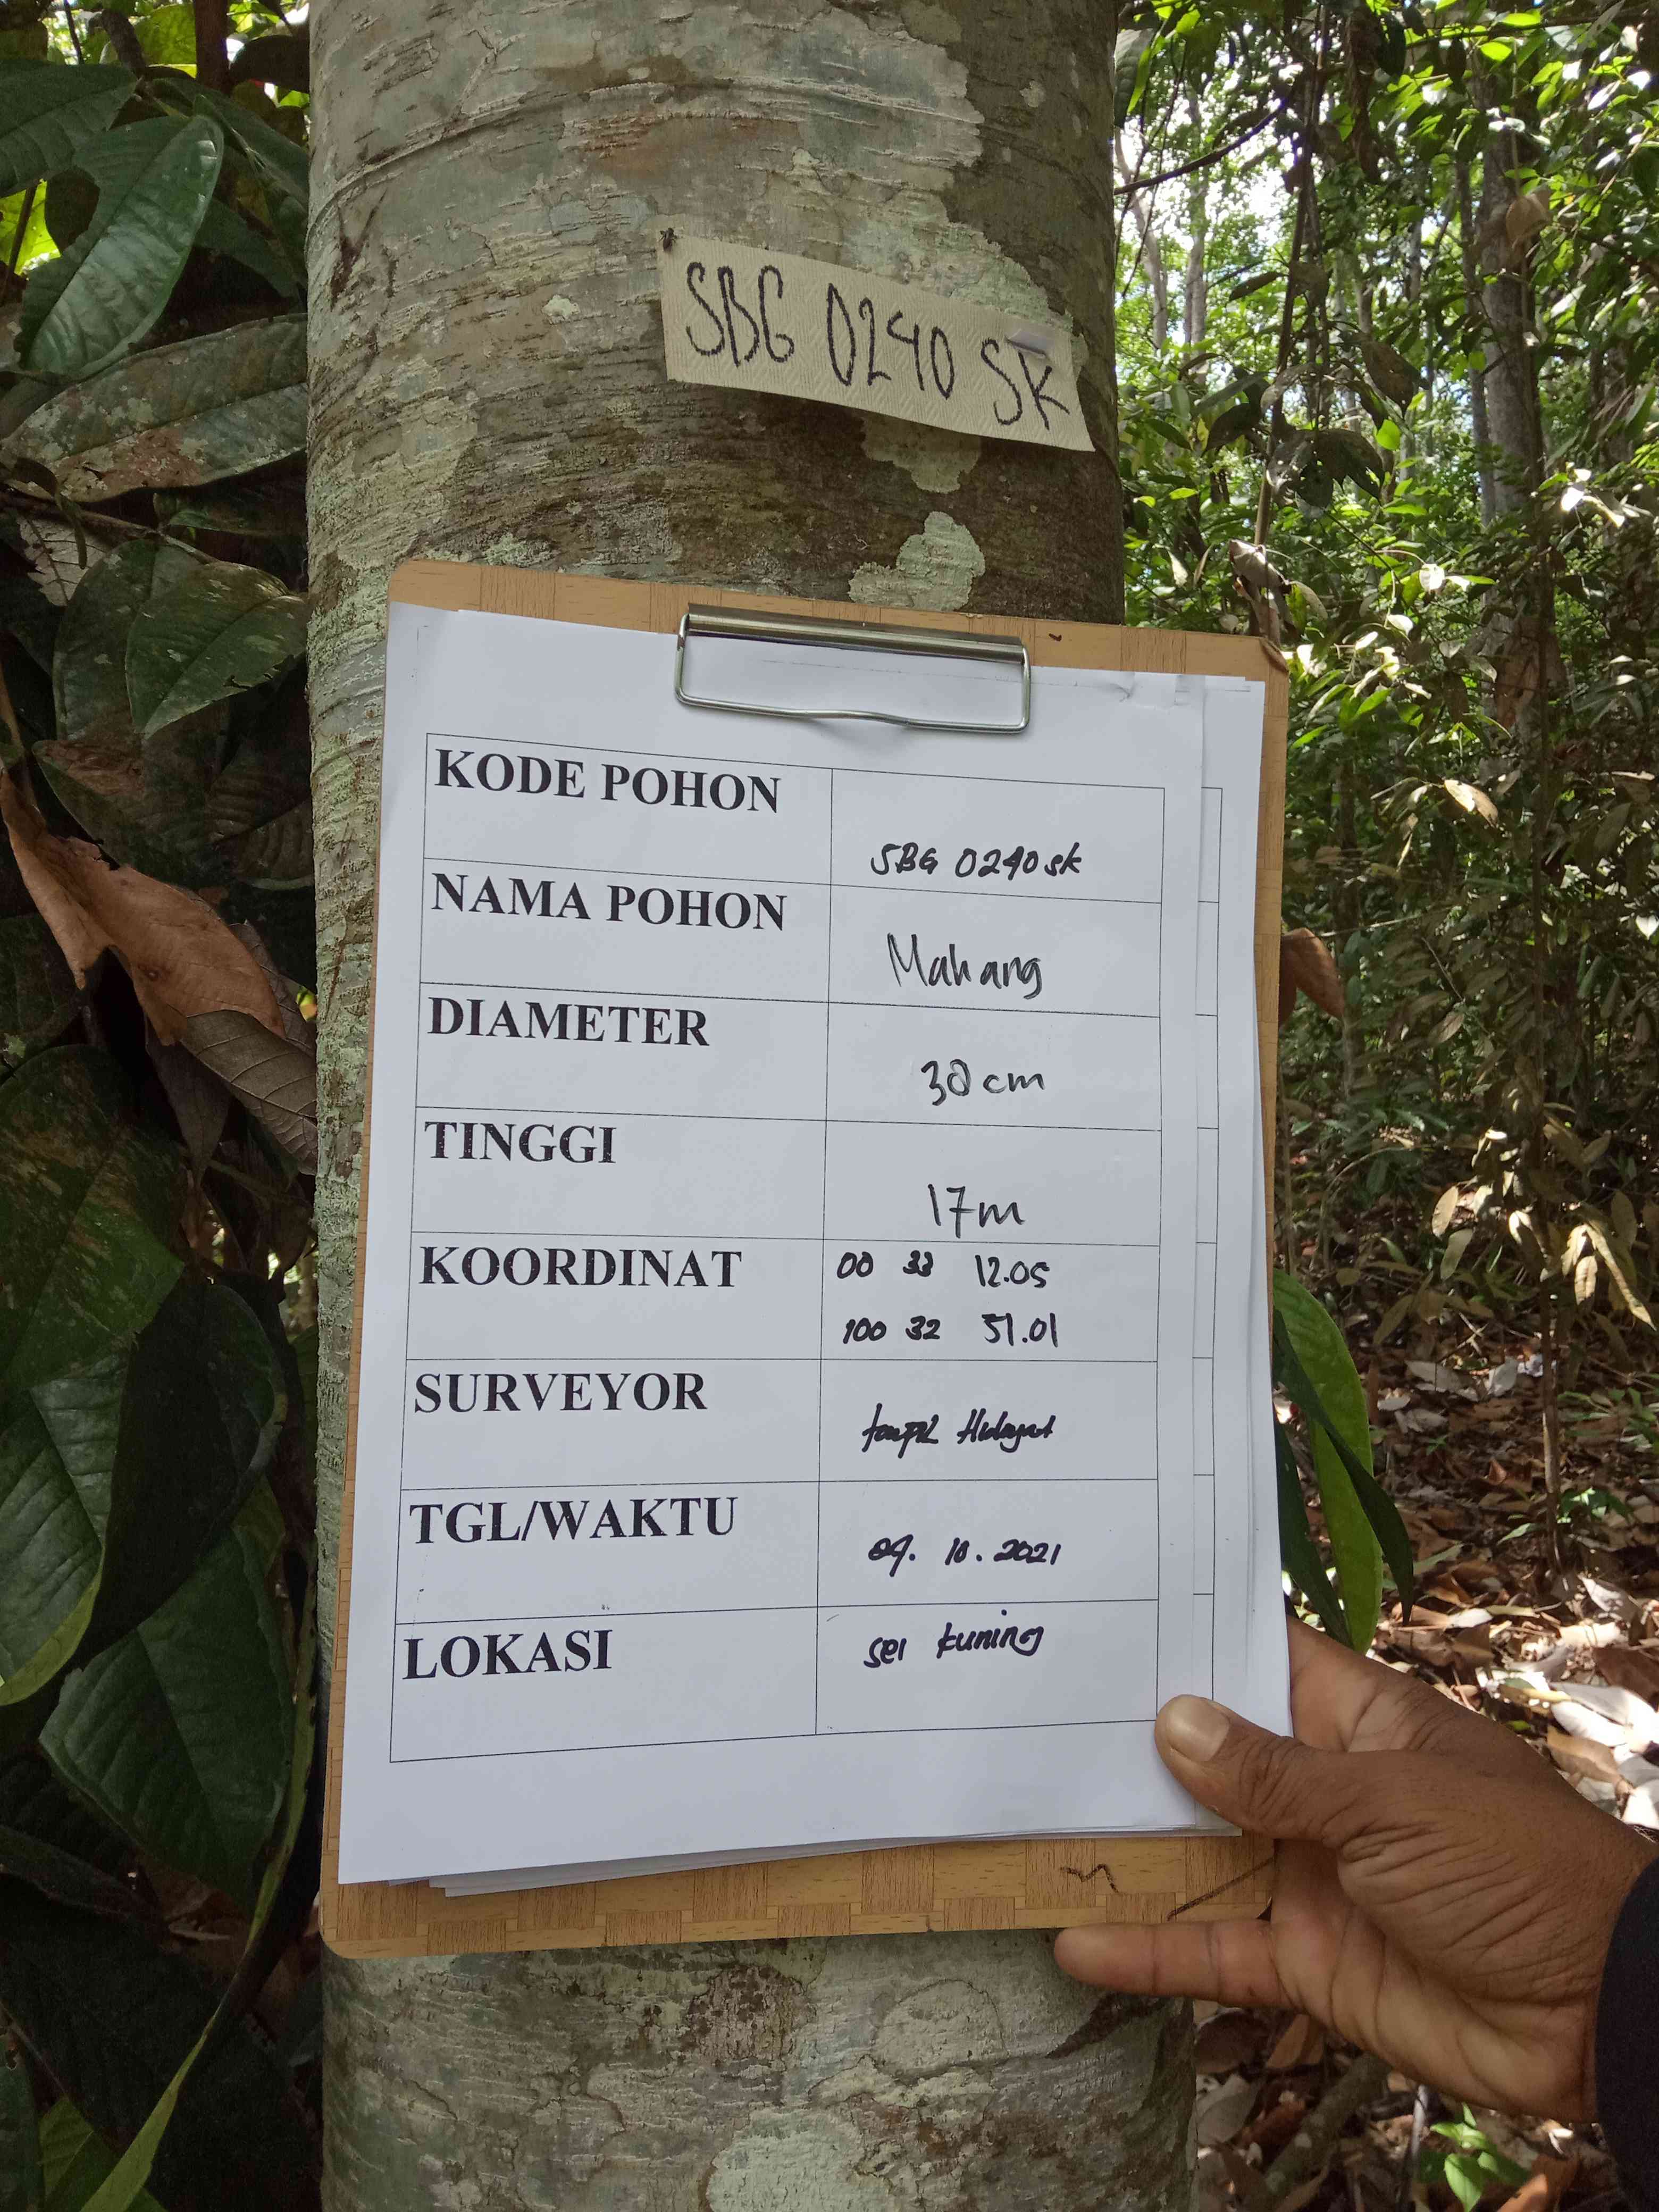 SBG 0240 SK
KODE POHON
SBG 0240 sk
NAMA POHON
Mahang
DIAMETER
30 cm
TINGGI
17m
KOORDINAT
00 33 12.05
100 32 51.01
SURVEYOR
Hidayat
TGL/WAKTU
10.2021
LOKASI
sei kuning